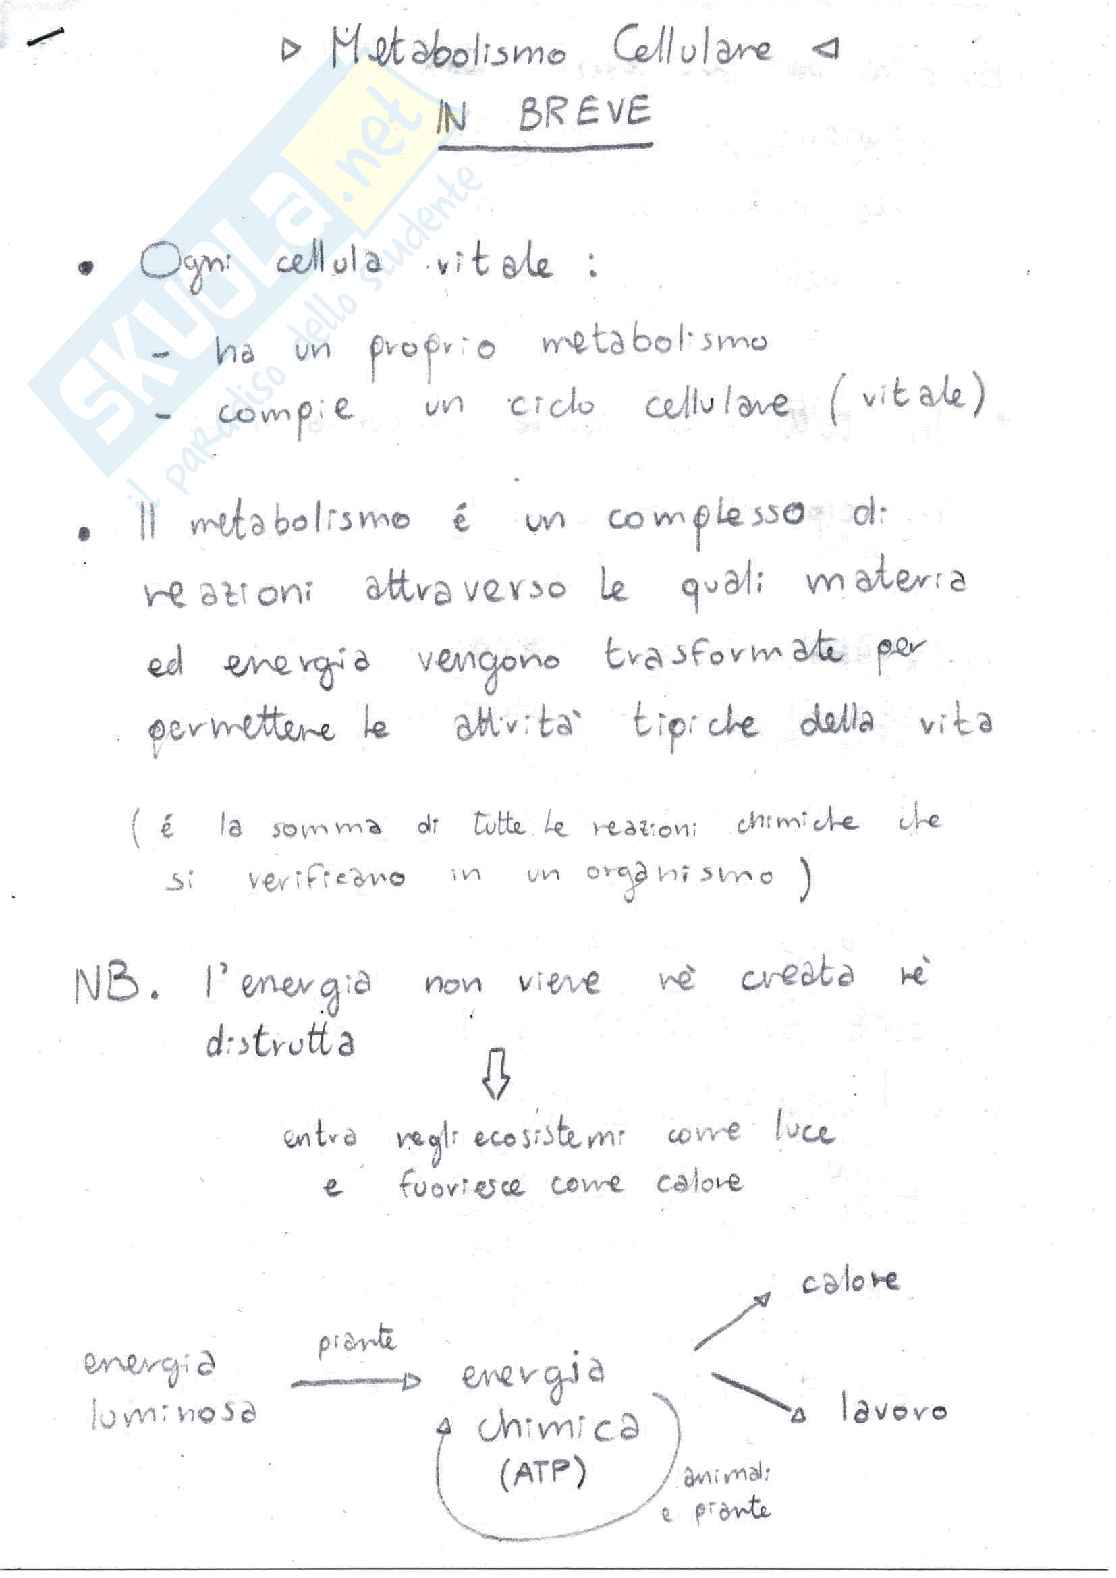 ▷ Metabolismo Cellulare ◁
IN BREVE
SKUOLA.net
il paradiso dello studente
• Ogni cellula vitale :
- ha un proprio metabolismo
- compie un ciclo cellulare (vitale)
• Il metabolismo é un complesso di
reazioni attraverso le quali materia
ed energia vengono trasformate per
permettere le attività tipiche della vita
(é la somma di tutte le reazioni chimiche che
si verificano in un organismo)
NB. l'energia non viene nè creata nè
distrutta
⇩
entra negli ecosistemi come luce
e fuoriesce come calore
calore
piante
energia
luminosa
energia
chimica
(ATP)
lavoro
animali
e piante